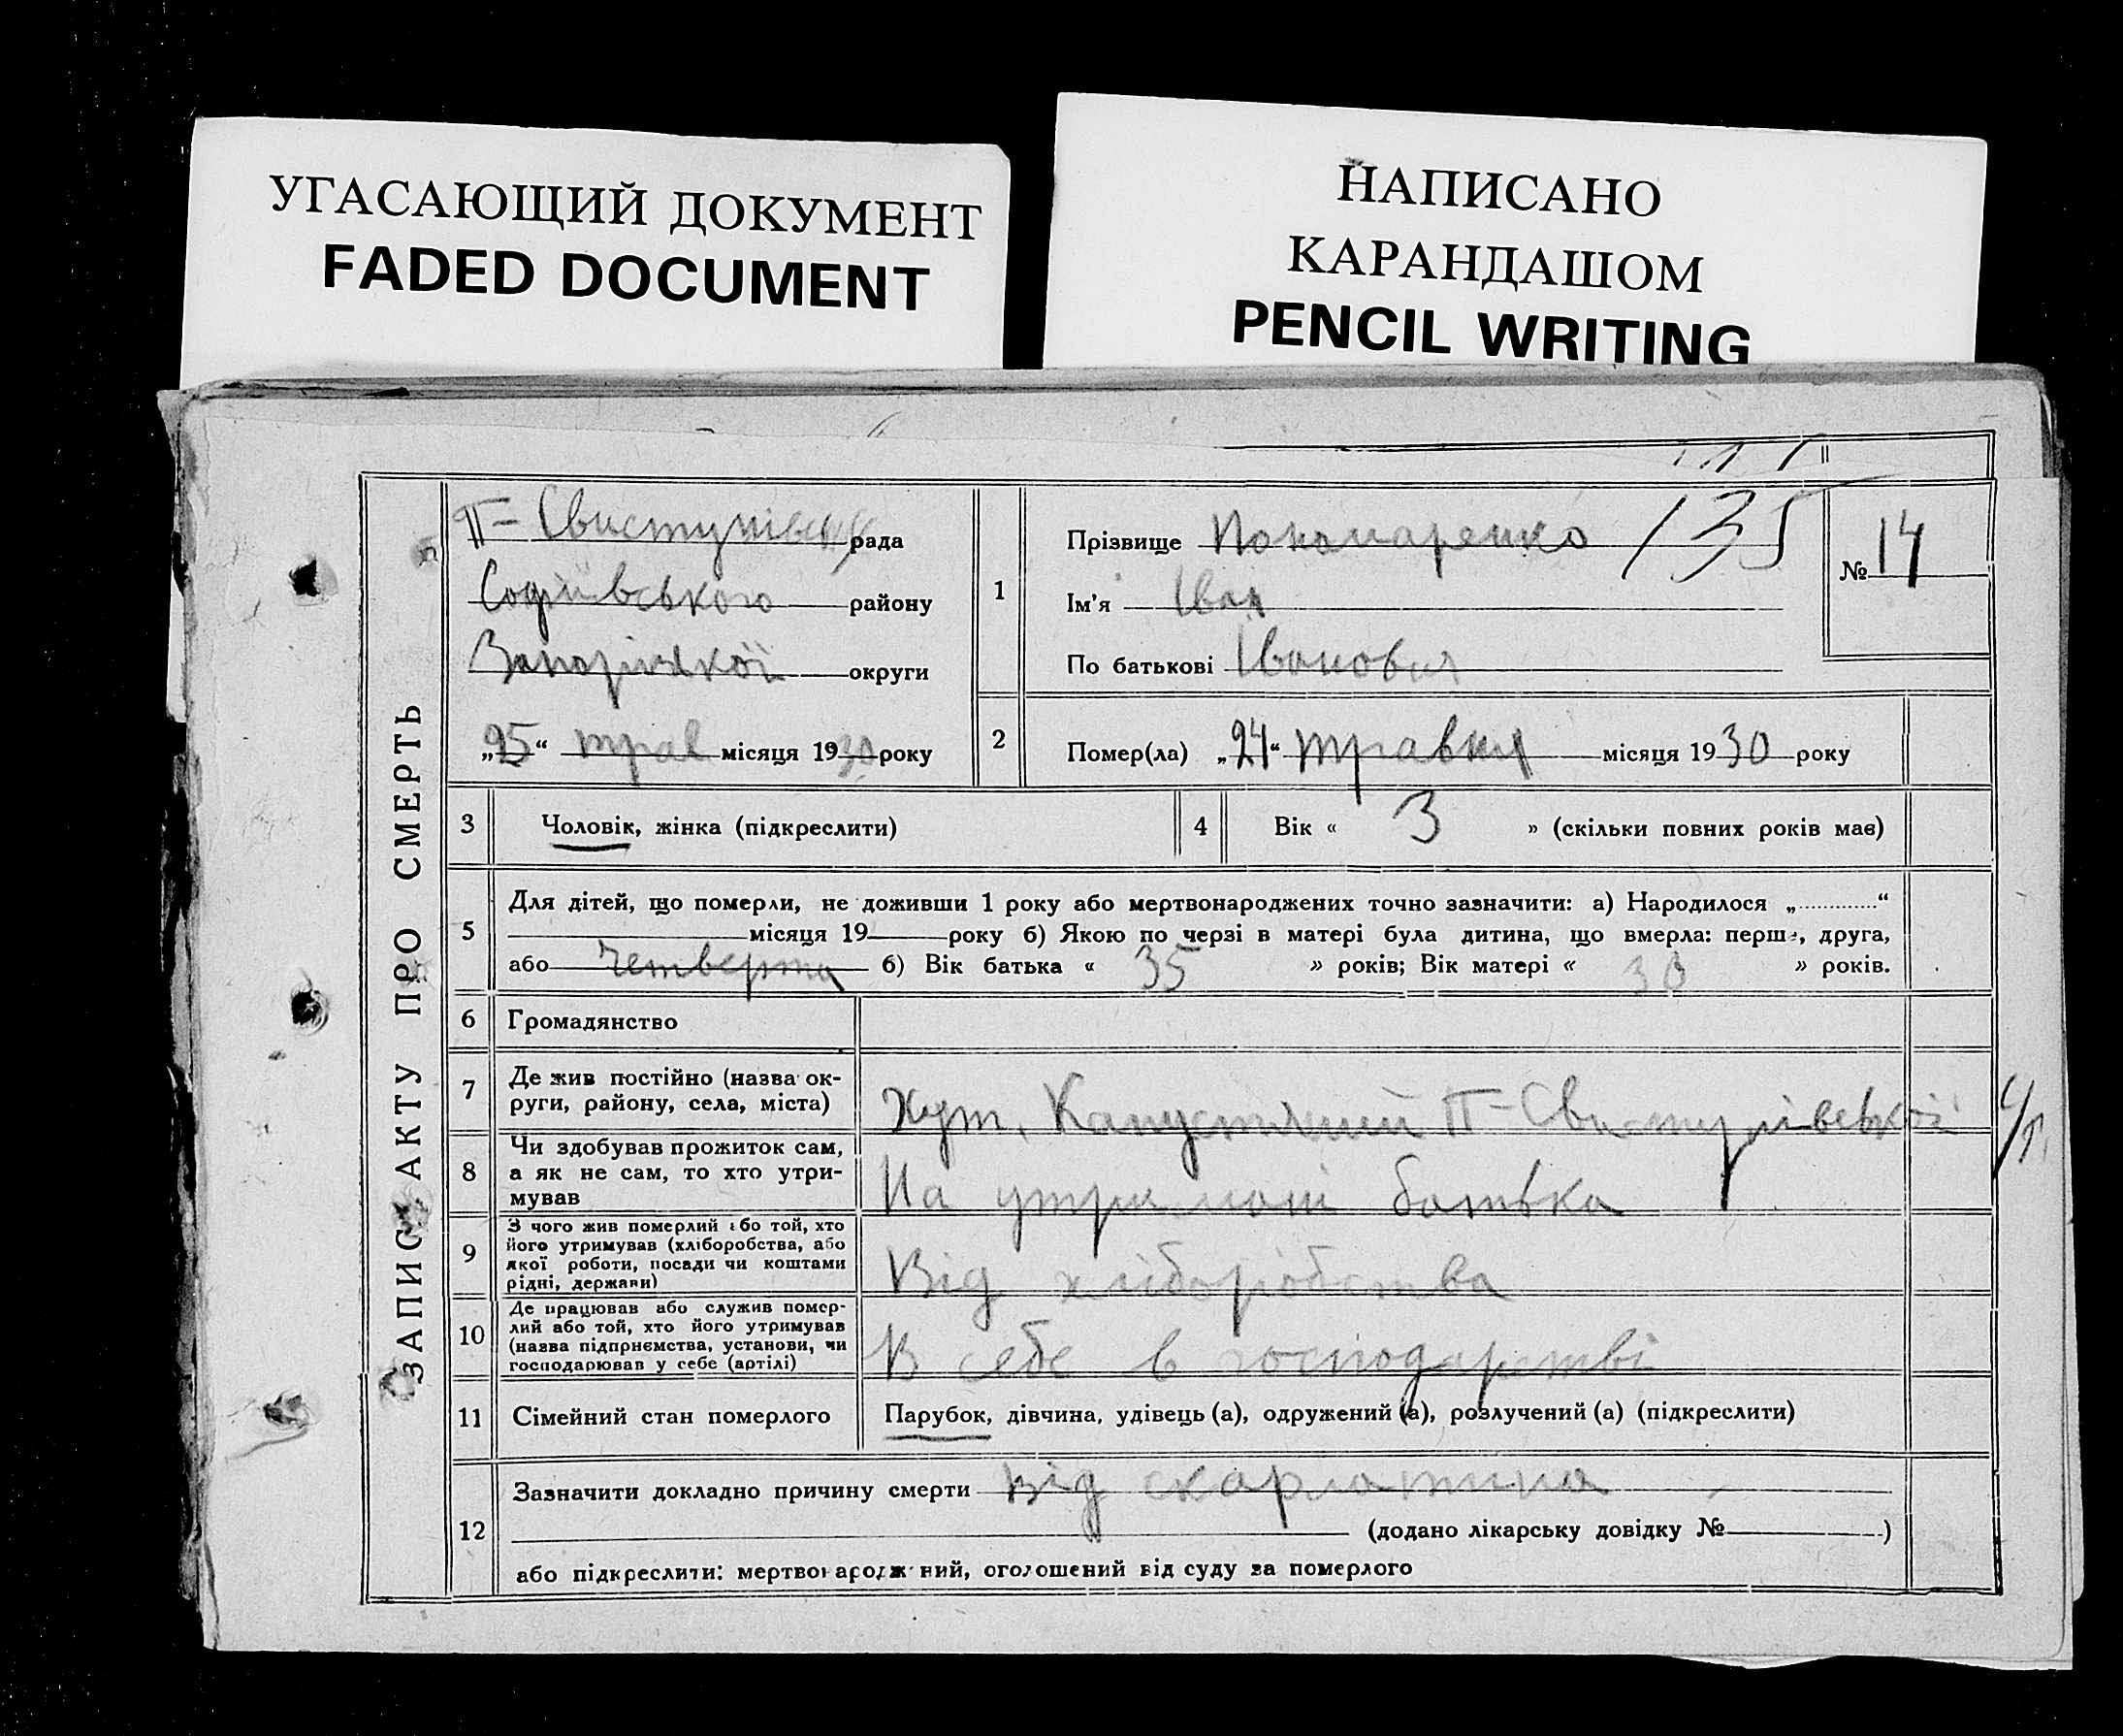 УГАСАЮЩИЙ ДОКУМЕНТ
FADED DOCUMENT
НАПИСАНО
КАРАНДАШОМ
PENCIL WRITING
ЗАПИС АКТУ ПРО СМЕРТЬ
П-Свистунівськ рада
Софіївського району
Запоріжської округи
„25“ трав місяця 1930 року
1
Прізвище Пономаренко 135
Ім'я Іван
По батькові Іванович
№ 14
2
Помер(ла) „24“ травня місяця 1930 року
3 Чоловік, жінка (підкреслити)
4 Вік « 3 » (скільки повних років має)
5 Для дітей, що померли, не доживши 1 року або мертвонароджених точно зазначити: а) Народилося „ “
місяця 19 року б) Якою по черзі в матері була дитина, що вмерла: перша, друга,
або четверта б) Вік батька « 35 » років; Вік матері « 30 » років.
6 Громадянство
7 Де жив постійно (назва ок-
руги, району, села, міста)
Хут. П-Свистунівської с/р.
8 Чи здобував прожиток сам,
а як не сам, то хто утри-
мував
На утримані батька
9 З чого жив померлий або той, хто
його утримував (хліборобства, або
якої роботи, посади чи коштами
рідні, держави)
Від хліборобства
10 Де працював або служив помер-
лий або той, хто його утримував
(назва підприємства, установи, чи
господарював у себе (артілі)
В себе в господарстві
11 Сімейний стан померлого
Парубок, дівчина, удівець (а), одружений (а), розлучений (а) (підкреслити)
12 Зазначити докладно причину смерти Від скарлатина
(додано лікарську довідку № )
або підкреслити: мертвонароджений, оголошений від суду за померлого